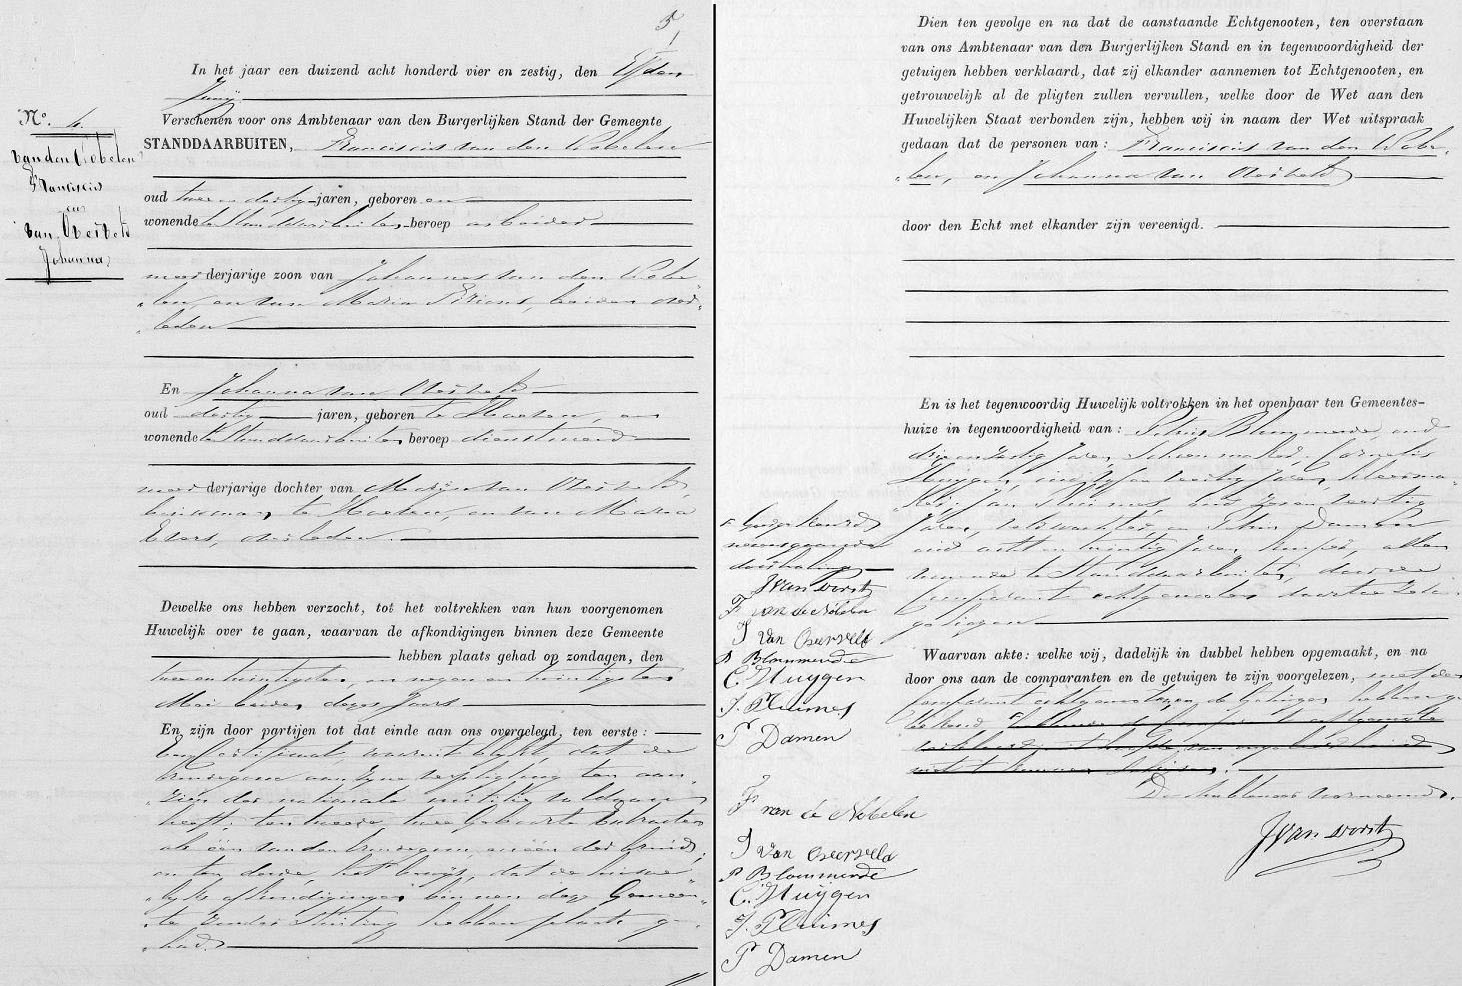 5
In het jaar een duizend acht honderd vier en zestig, den Elfden
Junij
Verschenen voor ons Ambtenaar van den Burgerlijken Stand der Gemeente
STANDDAARBUITEN, Franciscus van den Nobelen
oud twee en dertig jaren, geboren en
wonende te Standdaarbuiten beroep arbeider
meerderjarige zoon van Johannes van den Nobe„
„len, en van Maria, beiden over„
„leden
En Johanna van Oversveld
oud dertig jaren, geboren te Hoeven, en
wonende te Standdaarbuiten beroep dienstmeid
meerderjarige dochter van Marijn van Oversveld,
te Hoeven, en van Maria
Evers, overleden.
Dewelke ons hebben verzocht, tot het voltrekken van hun voorgenomen
Huwelijk over te gaan, waarvan de afkondigingen binnen deze Gemeente
hebben plaats gehad op zondagen, den
twee en twintigsten, en negen en twintigsten
Mei dezes Jaars
En zijn door partijen tot dat einde aan ons overgelegd, ten eerste:
Een Certificaat, waaruit blijkt, dat de
bruidegom aan zijne verpligting ten aan„
„zien der nationale militie voldaan
heeft; ten tweede, twee Geboorte Extracten
als één van den bruidegom, en één der bruid;
en ten derde, het bewijs, dat de huwe„
„lijks afkondigingen binnen deze Gemeen„
„te zonder stuiting hebben plaats ge„
„had.
No. 4.
van den Nobelen
Franciscus
en
van Oversveld
Johanna
Dien ten gevolge en na dat de aanstaande Echtgenooten, ten overstaan
van ons Ambtenaar van den Burgerlijken Stand en in tegenwoordigheid der
getuigen hebben verklaard, dat zij elkander aannemen tot Echtgenooten, en
getrouwelijk al de pligten zullen vervullen, welke door de Wet aan den
Huwelijken Staat verbonden zijn, hebben wij in naam der Wet uitspraak
gedaan dat de personen van: Franciscus van den Nobe„
„len, en Johanna van Oversveld
door den Echt met elkander zijn vereenigd.
En is het tegenwoordig Huwelijk voltrokken in het openbaar ten Gemeentes-
huize in tegenwoordigheid van: Petrus Blommerde, oud
drie en zestig Jaren, Schoenmaker, Cornelis
Huijgen, oud en veertig Jaren, kleerma„
„ker, Jan Pluimes, oud zeven en veertig
Jaren, veldwachter, en Petrus Damen
oud acht en twintig Jaren, allen
wonende te Standdaarbuiten, door de
comparante echtgenooten daartoe
gekozen
Waarvan akte: welke wij, dadelijk in dubbel hebben opgemaakt, en na
door ons aan de comparanten en de getuigen te zijn voorgelezen, met de
comparante echtgenooten en de getuigen hebben ge„
teekend
De Ambtenaar voornoemd.
J van Dorst
Goedgekeurd
nevensgaande
doorhaling
J van Dorst
F van de Nobelen
J van Oversveld
P Blommerde
C. Huijgen
J. Pluimes
P Damen
F van de Nobelen
J van Oversveld
P Blommerde
C. Huijgen
J. Pluimes
P Damen